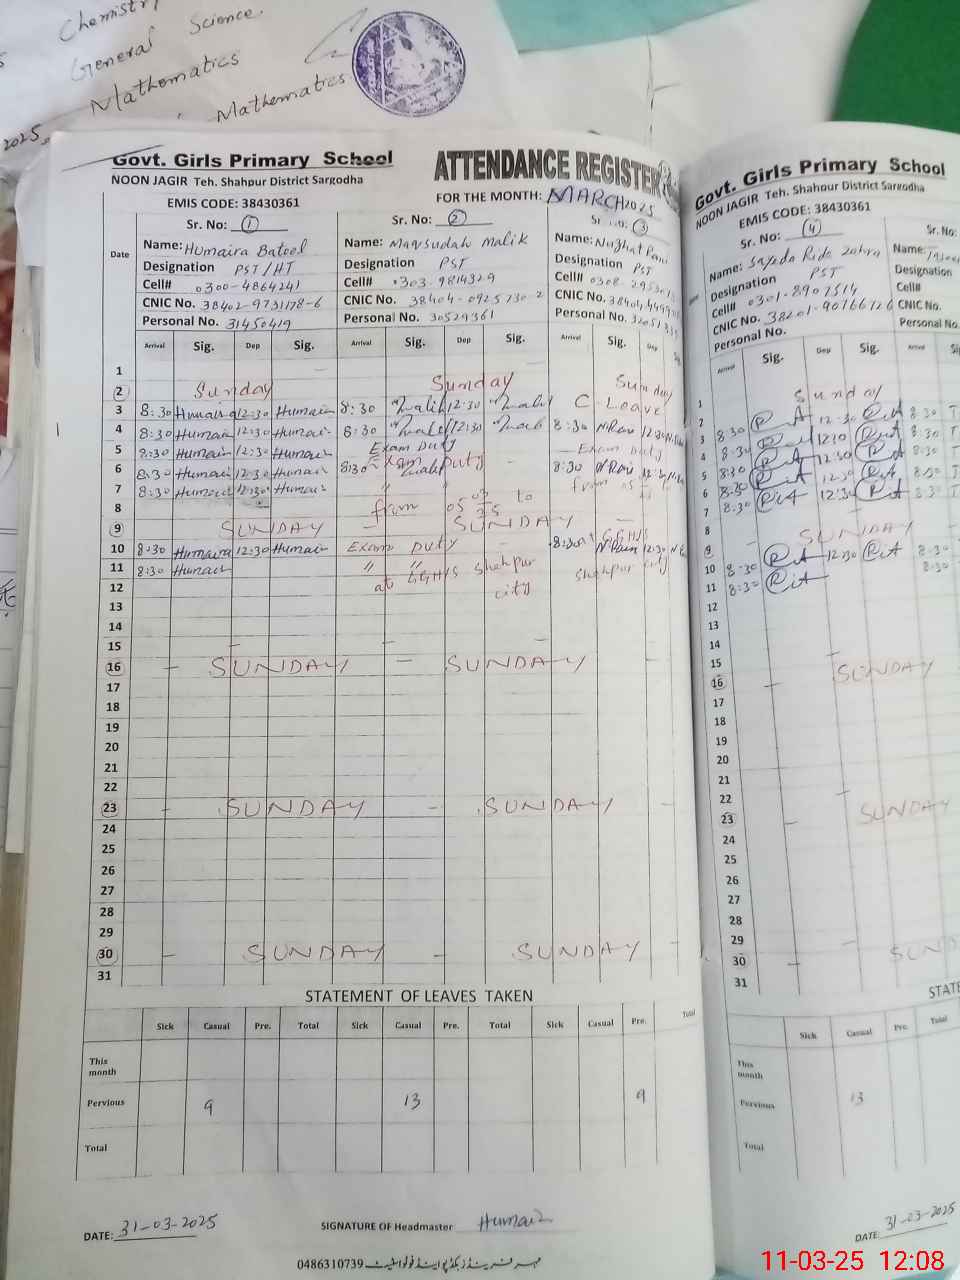 Chemistry
General Science.
Mathematics
Mathematics
2025.
Govt. Girls Primary School
NOON JAGIR Teh. Shahpur District Sargodha
EMIS CODE: 38430361
ATTENDANCE REGISTER
FOR THE MONTH: MARCH 2025
Sr. No: 1 Sr. No: 2 Sr. No: 3
Date
Name: Humaira Batool Name: Malik Name: Nuzhat
Designation PST/HT Designation PST Designation PST
Cell# 0300-4864241 Cell# 0303-9814329 Cell# 0308
CNIC No. 38402-9731178-6 CNIC No. 38404-0925730-2 CNIC No.
Personal No. 31450419 Personal No. 30529361 Personal No.
Arrival Sig. Dep Sig. Arrival Sig. Dep Sig. Arrival Sig. Dep
1
2 Sunday Sunday Sunday
3 8:30 Humaira 12:30 Humair 8:30 Malik 12:30 Malik C-Leave
4 8:30 Humair 12:30 Humair 8:30 Malik 12:30 Malik 8:30 N.Rani 12:30
5 8:30 Humair 12:30 Humair Exam Duty Exam Duty
6 8:30 Humair 12:30 Humair 8:30 Exam Duty 8:30 N.Rani
7 8:30 Humair 12:30 Humair " " from
8 from 05 03 25 to
9 SUNDAY SUNDAY
10 8:30 Humaira 12:30 Humair Exam Duty 8:30 N.Rani 12:30
11 8:30 Humair " " Shahpur Shahpur City
12 at GGHS city
13
14
15
16 SUNDAY SUNDAY
17
18
19
20
21
22
23 SUNDAY SUNDAY
24
25
26
27
28
29
30 SUNDAY SUNDAY
31
STATEMENT OF LEAVES TAKEN
Sick Casual Pre. Total Sick Casual Pre. Total Sick Casual Pre. Total
This month
Pervious 9 13 9
Total
DATE: 31-03-2025 SIGNATURE OF Headmaster Humair
0486310739
Govt. Girls Primary School
NOON JAGIR Teh. Shahpur District Sargodha
EMIS CODE: 38430361
Sr. No: 4 Sr. No:
Name: Sayeda Rida Zahra Name:
Designation PST Designation
Cell# 0301-8907514 Cell#
CNIC No. 38201-90766726 CNIC No.
Personal No. Personal No.
Arrival Sig. Dep Sig. Arrival
1
2 Sunday
3 8:30 12:30 8:30
4 8:30 8:30
5 8:30 12:30 8:30
6 8:30 12:30 8:30
7 8:30 12:30 8:30
8
9 SUNDAY
10 8:30 12:30 8:30
11 8:30 8:30
12
13
14
15
16 SUNDAY
17
18
19
20
21
22
23 SUNDAY
24
25
26
27
28
29
30
31
Sick Casual Pre. Total
This month
Pervious 13
Total
DATE: 31-03-2025
11-03-25 12:08